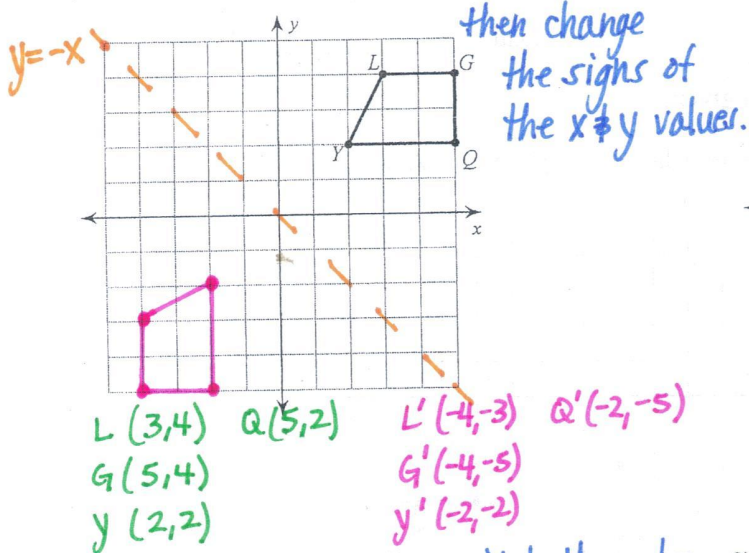 y=-x
y
then change
the signs of
the x & y values.
L
G
Y
Q
x
L (3,4) Q(5,2)
G(5,4)
y (2,2)
L' (-4,-3) Q'(-2,-5)
G'(-4,-5)
y' (-2,-2)